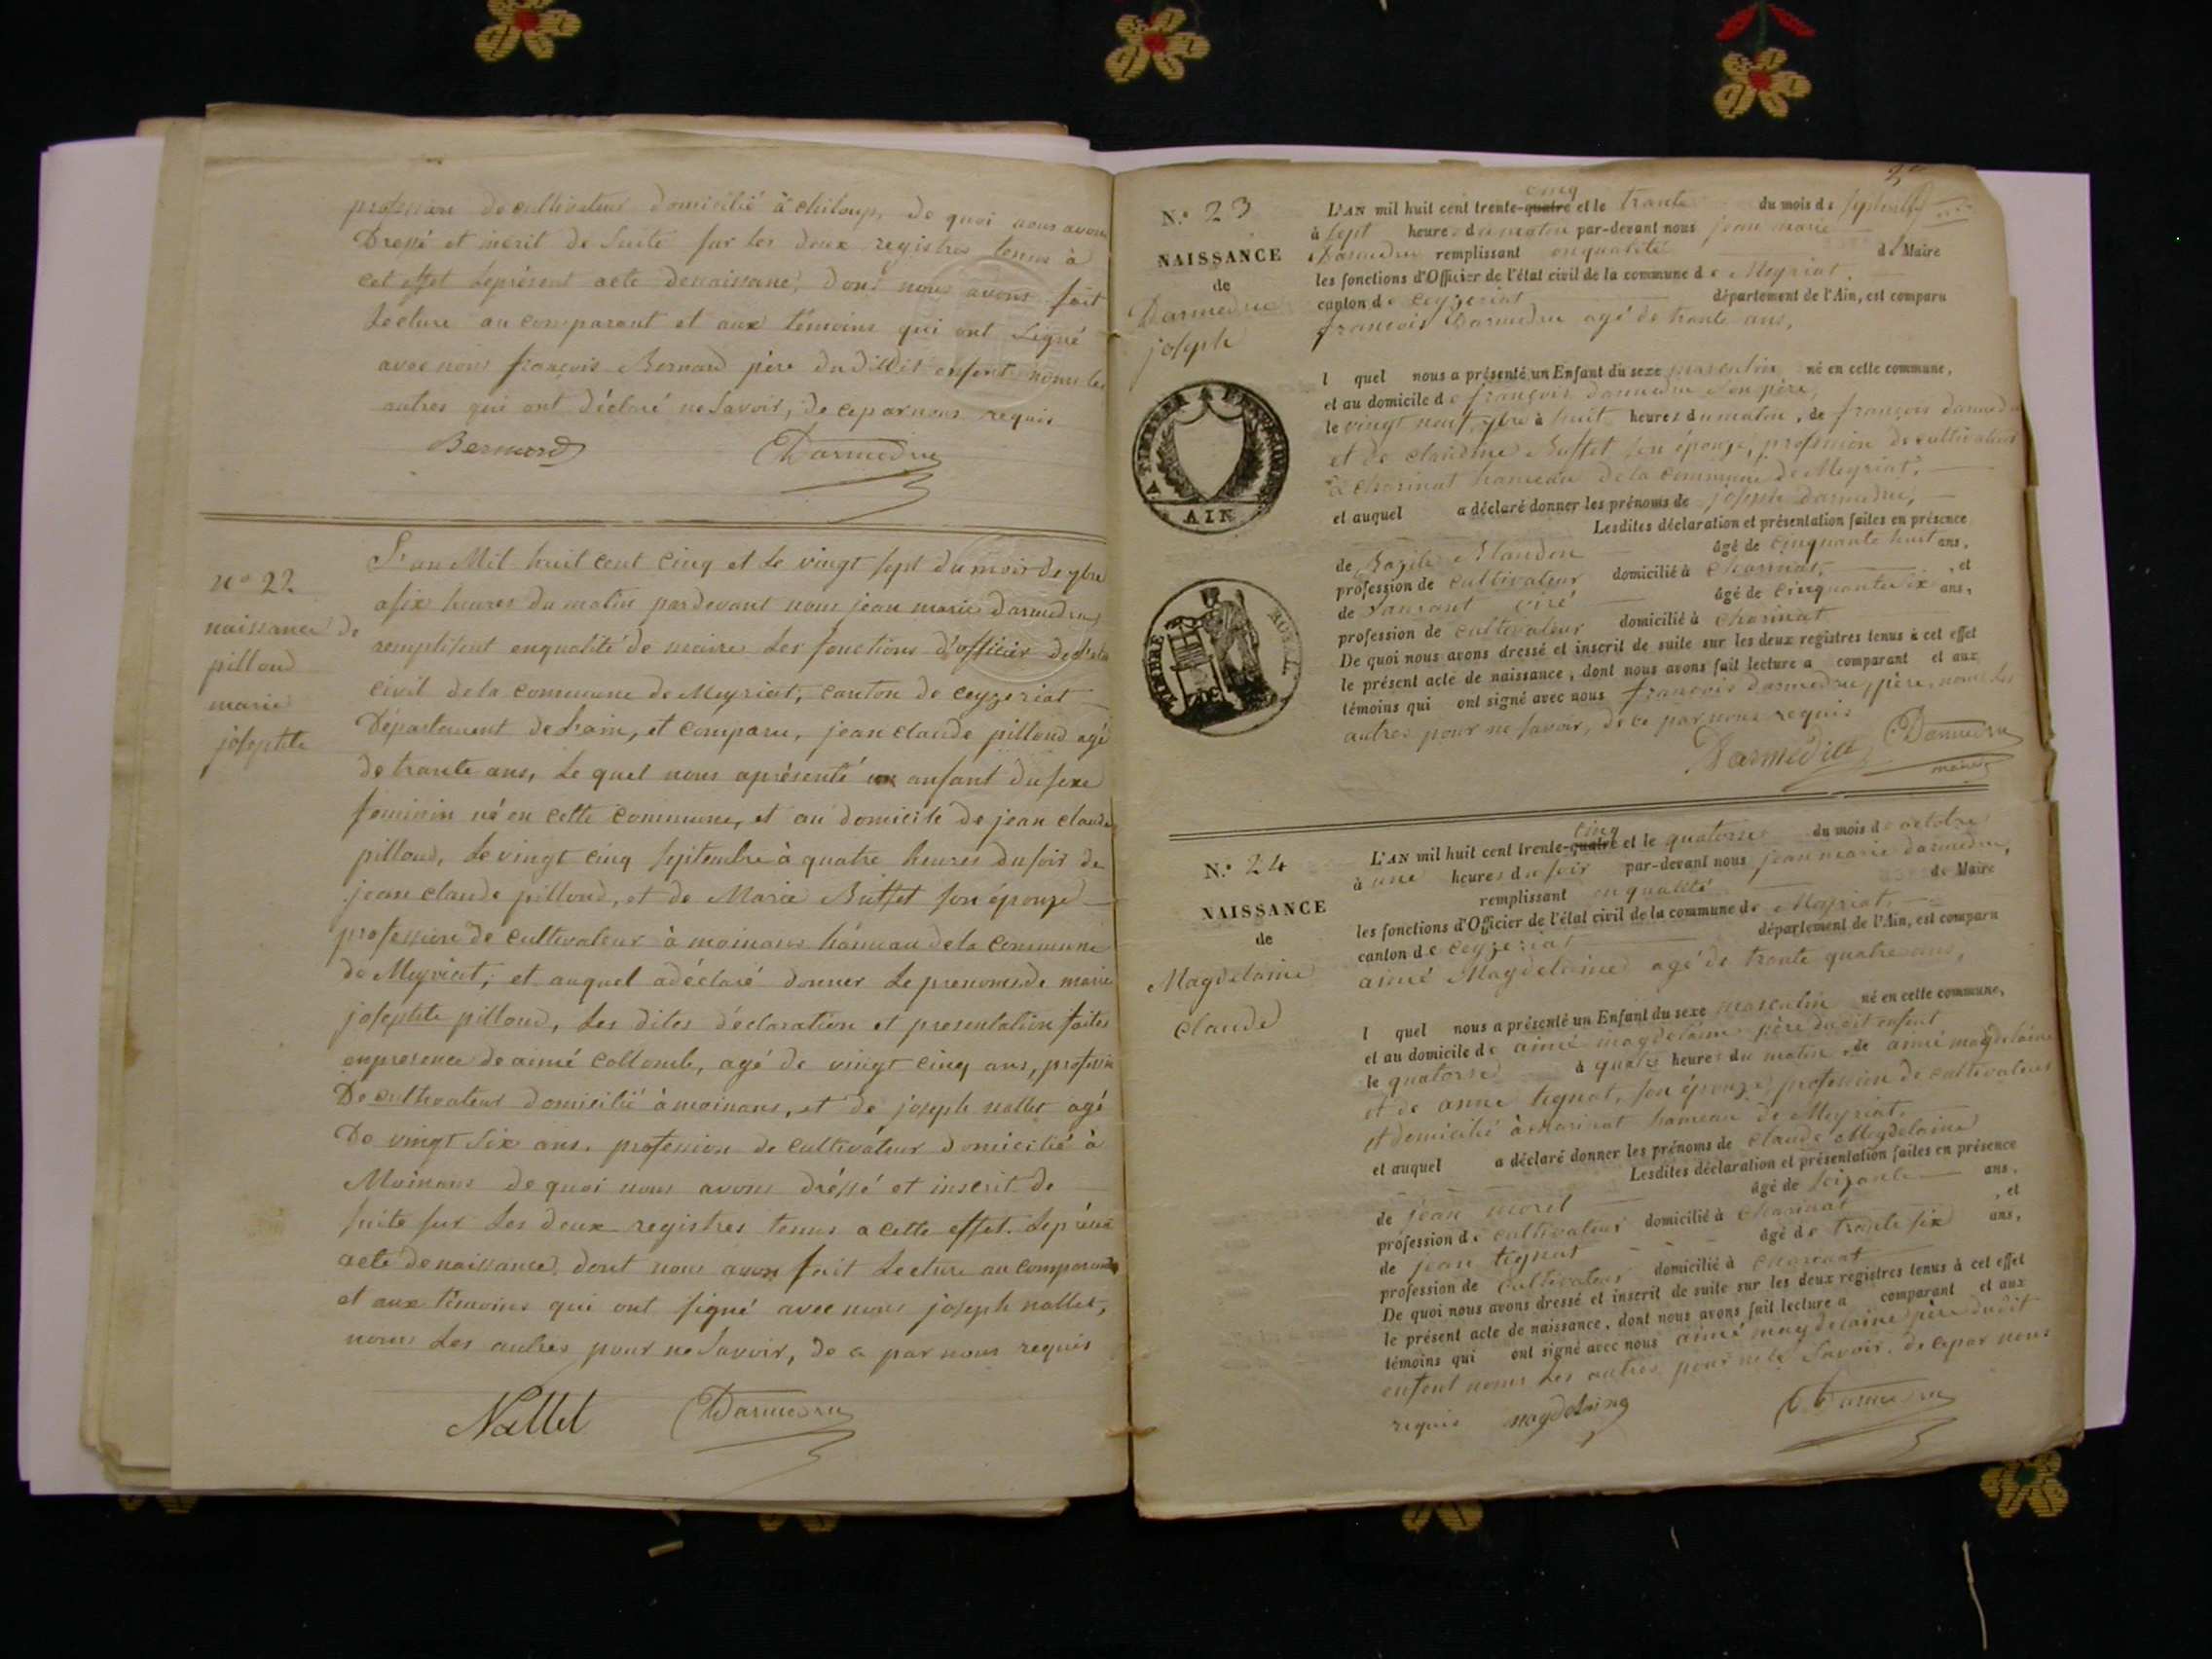 profession de cultivateur domicilié à chiloup, de quoi nous avons
Dressé et inscrit de suite sur les deux registres tenus à
cet effet le présent acte denaissance, dont nous avons fait
Lecture au comparant et aux témoins qui ont signé
avec nous françois Bernard père du dit enfent nonw les
autres qui ont déclaré ne savoir, de ce par nous requis
Bernard Darmedru
n° 22
naissance de
pilloud
marie
josephte
L'an Mil huit cent cinq et le vingt sept du mois de 7bre
a six heures du matin pardevant nous jean marie darmedru
remplissent enqualité de maire les fonctions d'officier de l'état
civil dela commune de Meyriat, canton de ceyzeriat
Département de Lain, et comparu, jean claude pilloud agé
de trante ans, le quel nous aprésenté un anfant du sexe
feminin né en cette commune, et au domicile de jean claude
pilloud, le vingt cinq septembre à quatre heures du soir de
jean claude pilloud, et de Marie Buffet son épouze
profession de cultivateur à moinans hameau dela commune
de Meyriat; et auquel adéclaré donner le prenoms de marie
josephte pilloud, les dites déclaration et presentation faites
enpresence de aimé collomb, agé de vingt cinq ans, profession
De cultivateur domicilié à moinans, et de joseph nallet agé
De vingt six ans, profession de cultivateur domicilié à
Moinans de quoi nous avons dréssé et inscrit de
suite sur les deux registres tenus a cette effet. le présent
acte denaissance, dont nous avons fait Lecture au comparant
et aux témoins qui ont signé avec nous joseph nallet,
nonw les autres pour ne savoir, de ce par nous requis
Nallet Darmedru
N.° 23
NAISSANCE
de
Darmedru
joseph
A TIMBRER A L'EXTRAORDINAIRE
AIN
TIMBRE ROYAL
cinq
L'AN mil huit cent trente-quatre et le trante du mois de septembre
à sept heures du matin par-devant nous jean marie
Darmedru remplissant enqualité de Maire
les fonctions d'Officier de l'état civil de la commune de Meyriat
canton de ceyzeriat département de l'Ain, est comparu
françois Darmedru agé de trante ans,
l quel nous a présenté un Enfant du sexe masculin né en cette commune,
et au domicile de françois darmedru son père,
le vingt neuf 7bre à huit heures du matin, de françois darmedru
et de claudine Buffet son épouze, profession de cultivateur
à charinat hameau dela commune de Meyriat,
et auquel a déclaré donner les prénoms de joseph darmedru,
Lesdites déclaration et présentation faites en présence
de Bazile Blandon âgé de cinquante huit ans,
profession de cultivateur domicilié à charinat, et
de Laurant viré âgé de cinquante six ans,
profession de cultivateur domicilié à charinat
De quoi nous avons dressé et inscrit de suite sur les deux registres tenus à cet effet
le présent acte de naissance, dont nous avons fait lecture a comparant et aux
témoins qui ont signé avec nous françois darmedru, père, nonw les
autres pour ne savoir, de ce par nous requis
Darmedru Darmedru
maire
N.° 24
NAISSANCE
de
Magdelaine
claude
cinq
L'AN mil huit cent trente-quatre et le quatorse du mois de octobre
à une heures du soir par-devant nous jean marie darmedru,
remplissant enqualité de Maire
les fonctions d'Officier de l'état civil de la commune de Meyriat,
canton de ceyzeriat département de l'Ain, est comparu
aimé Magdelaine agé de trante quatre ans,
l quel nous a présenté un Enfant du sexe masculin né en cette commune,
et au domicile de aimé magdelaine père dudit enfent
le quatorse à quatre heures du matin, de aimé magdelaine
et de anne tignat, son épouze, profession de cultivateur
et domicilié à charinat hameau de Meyriat,
et auquel a déclaré donner les prénoms de claude Magdelaine
Lesdites déclaration et présentation faites en présence
de jean morel âgé de soizante ans,
profession de cultivateur domicilié à charinat, et
de jean tignat âgé de trante six ans,
profession de cultivateur domicilié à charinat
De quoi nous avons dressé et inscrit de suite sur les deux registres tenus à cet effet
le présent acte de naissance, dont nous avons fait lecture a comparant et aux
témoins qui ont signé avec nous aimé magdelaine père dudit
enfent nonw les autres pour ne le savoir, de ce par nous
requis magdelaine Darmedru